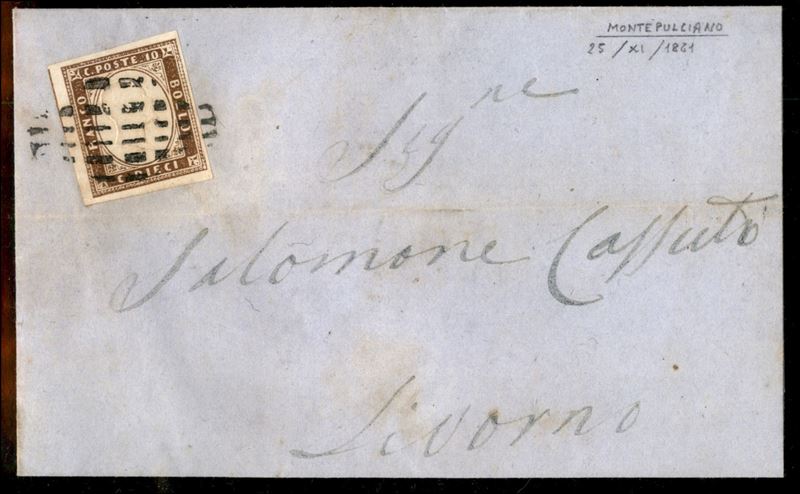 MONTEPULCIANO
25/XI/1861
C. POSTE 10
FRANCO
BOLLO
C. DIECI
Sigre
Salomone Cassuto
Livorno